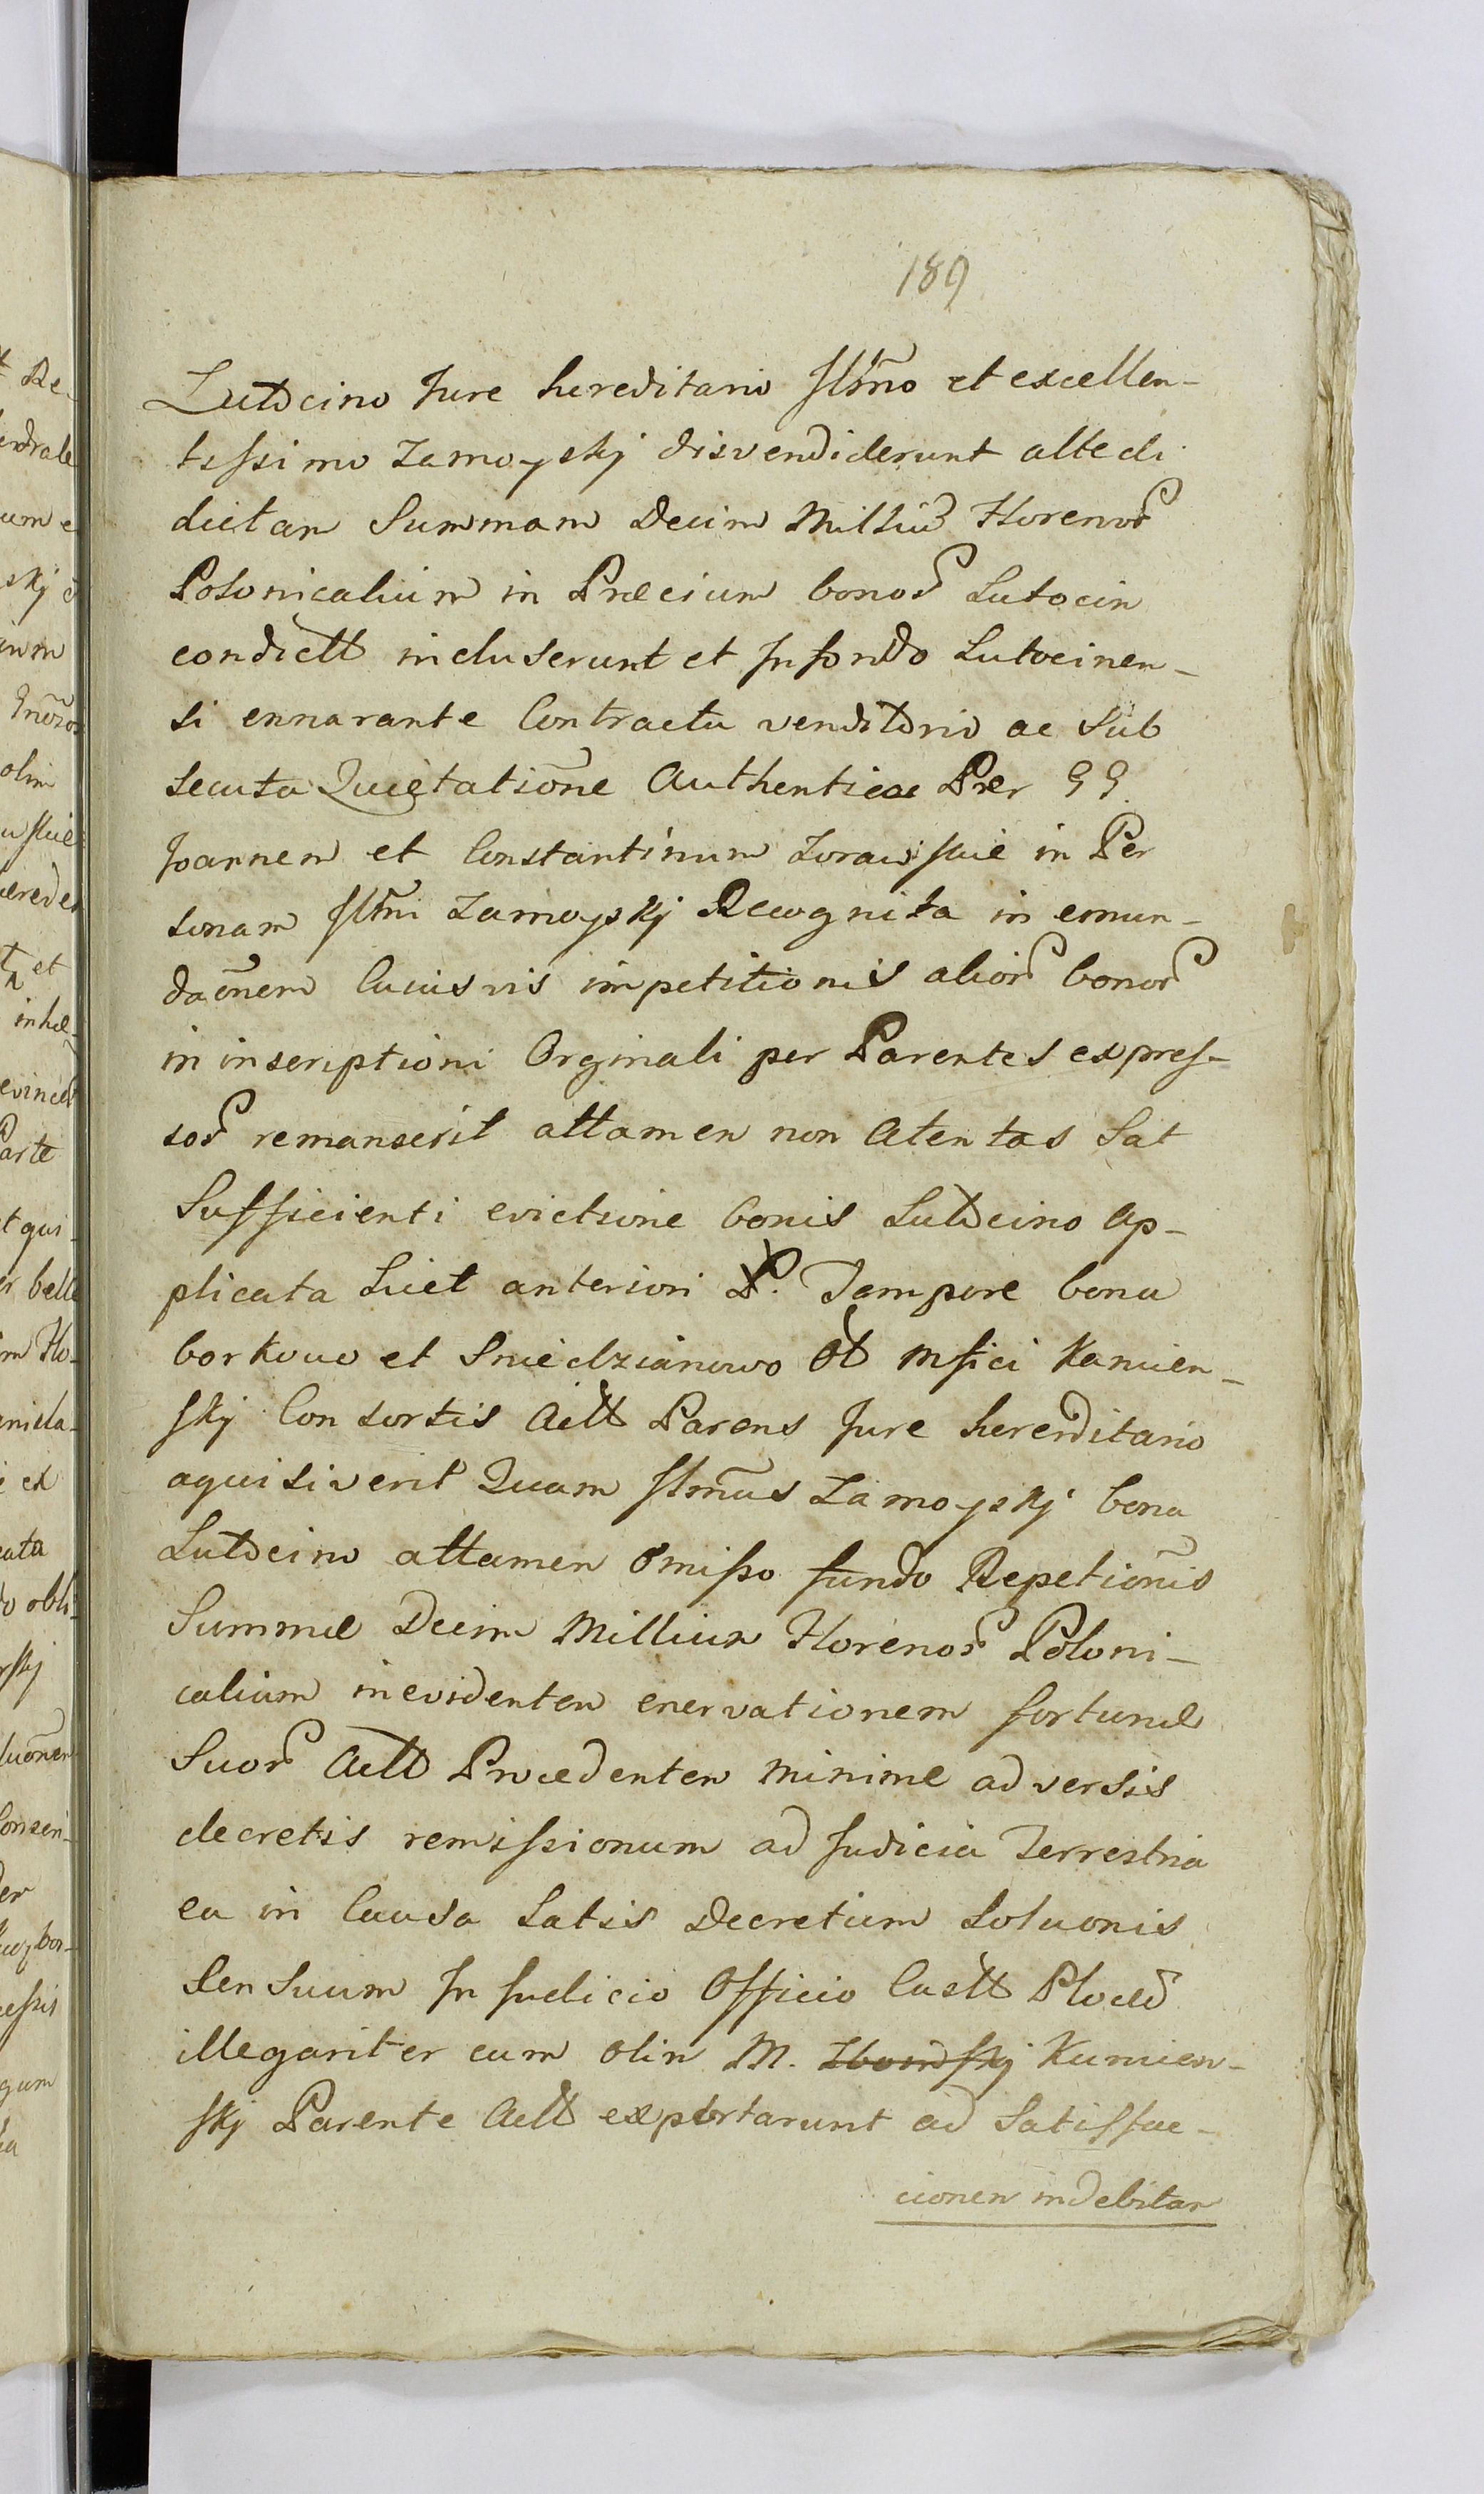 189
Lutocino Jure hereditario Illm̃o et excellen-
tissimo Zamoyskj disvendiderunt altedi
dictam Summam Decim Milliū Florenor
Polonicalium in Præcium bonor Lutocin
condictt incluserunt et Infondo Lutocinen-
si ennarante Contractu venditorio ac Sub
secuta Quietatiōne Authentica Per GG
Joannem et Constantinum Zorawskie in Per
sonam Illm̃i Zamoyskj Recognita in emun-
daōnem Cuiusvis impetitionis alior bonor
in inscriptioni Orginali per Parentes expres-
sor remanserit attamen non Atentas Sat
Sufficienti evictione bonis Lutocino ap-
plicata Licet anteriori Tempore bona
borkowo et Sniedzianowo Ol Mfici Kamien-
skj Consortis Actt Parens Jure hererditario
aquisiverit Quam Illm̃us Zamoyskj bona
Lutocino attamen Omisso fundo Repetiōnis
Summæ Decim Millium Florenor Poloni-
calium inevidentem enervationem fortunæ
Suor Actt Procedentem minime adversis
decretis remissionum ad Judicia Terrestria
ea in Causa Satis Decretum Soluonis
Sensuum In Judicio Officio Castt Plocen
illegariter cum olim M. Kamien-
skj Parente Actt exportarunt ad Satisfac-
cionem indebitam
t Re-
endrale
um e
skj
inm
Gnōror
olim
heredes
et
inhæ-
evinci
Parte
t qui-
er belle
m Flo-
i ex
cata
do obli-
skj
Consen-
gum